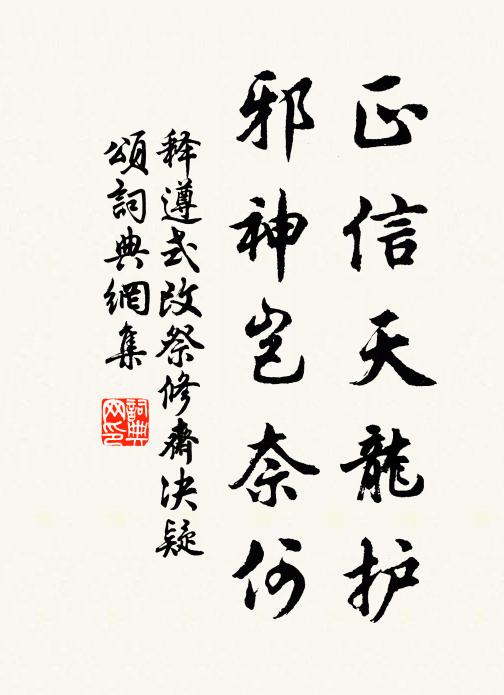 正信天龍护
邪神岂奈何
释遵式改祭修齋决疑
頌詞典網集
詞典
网印